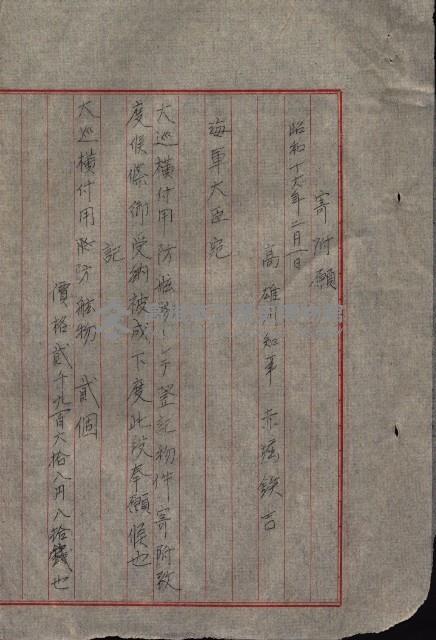 寄附願
昭和十六年二月一日
高雄州知事 赤堀鉄吉
海軍大臣宛
大巡横付用防舷物トシテ登記物件寄附致
度候條御受納被成下度此段奉願候也
記
大巡横付用防舷物 貳個
價格貳千九百六拾八円八拾錢也